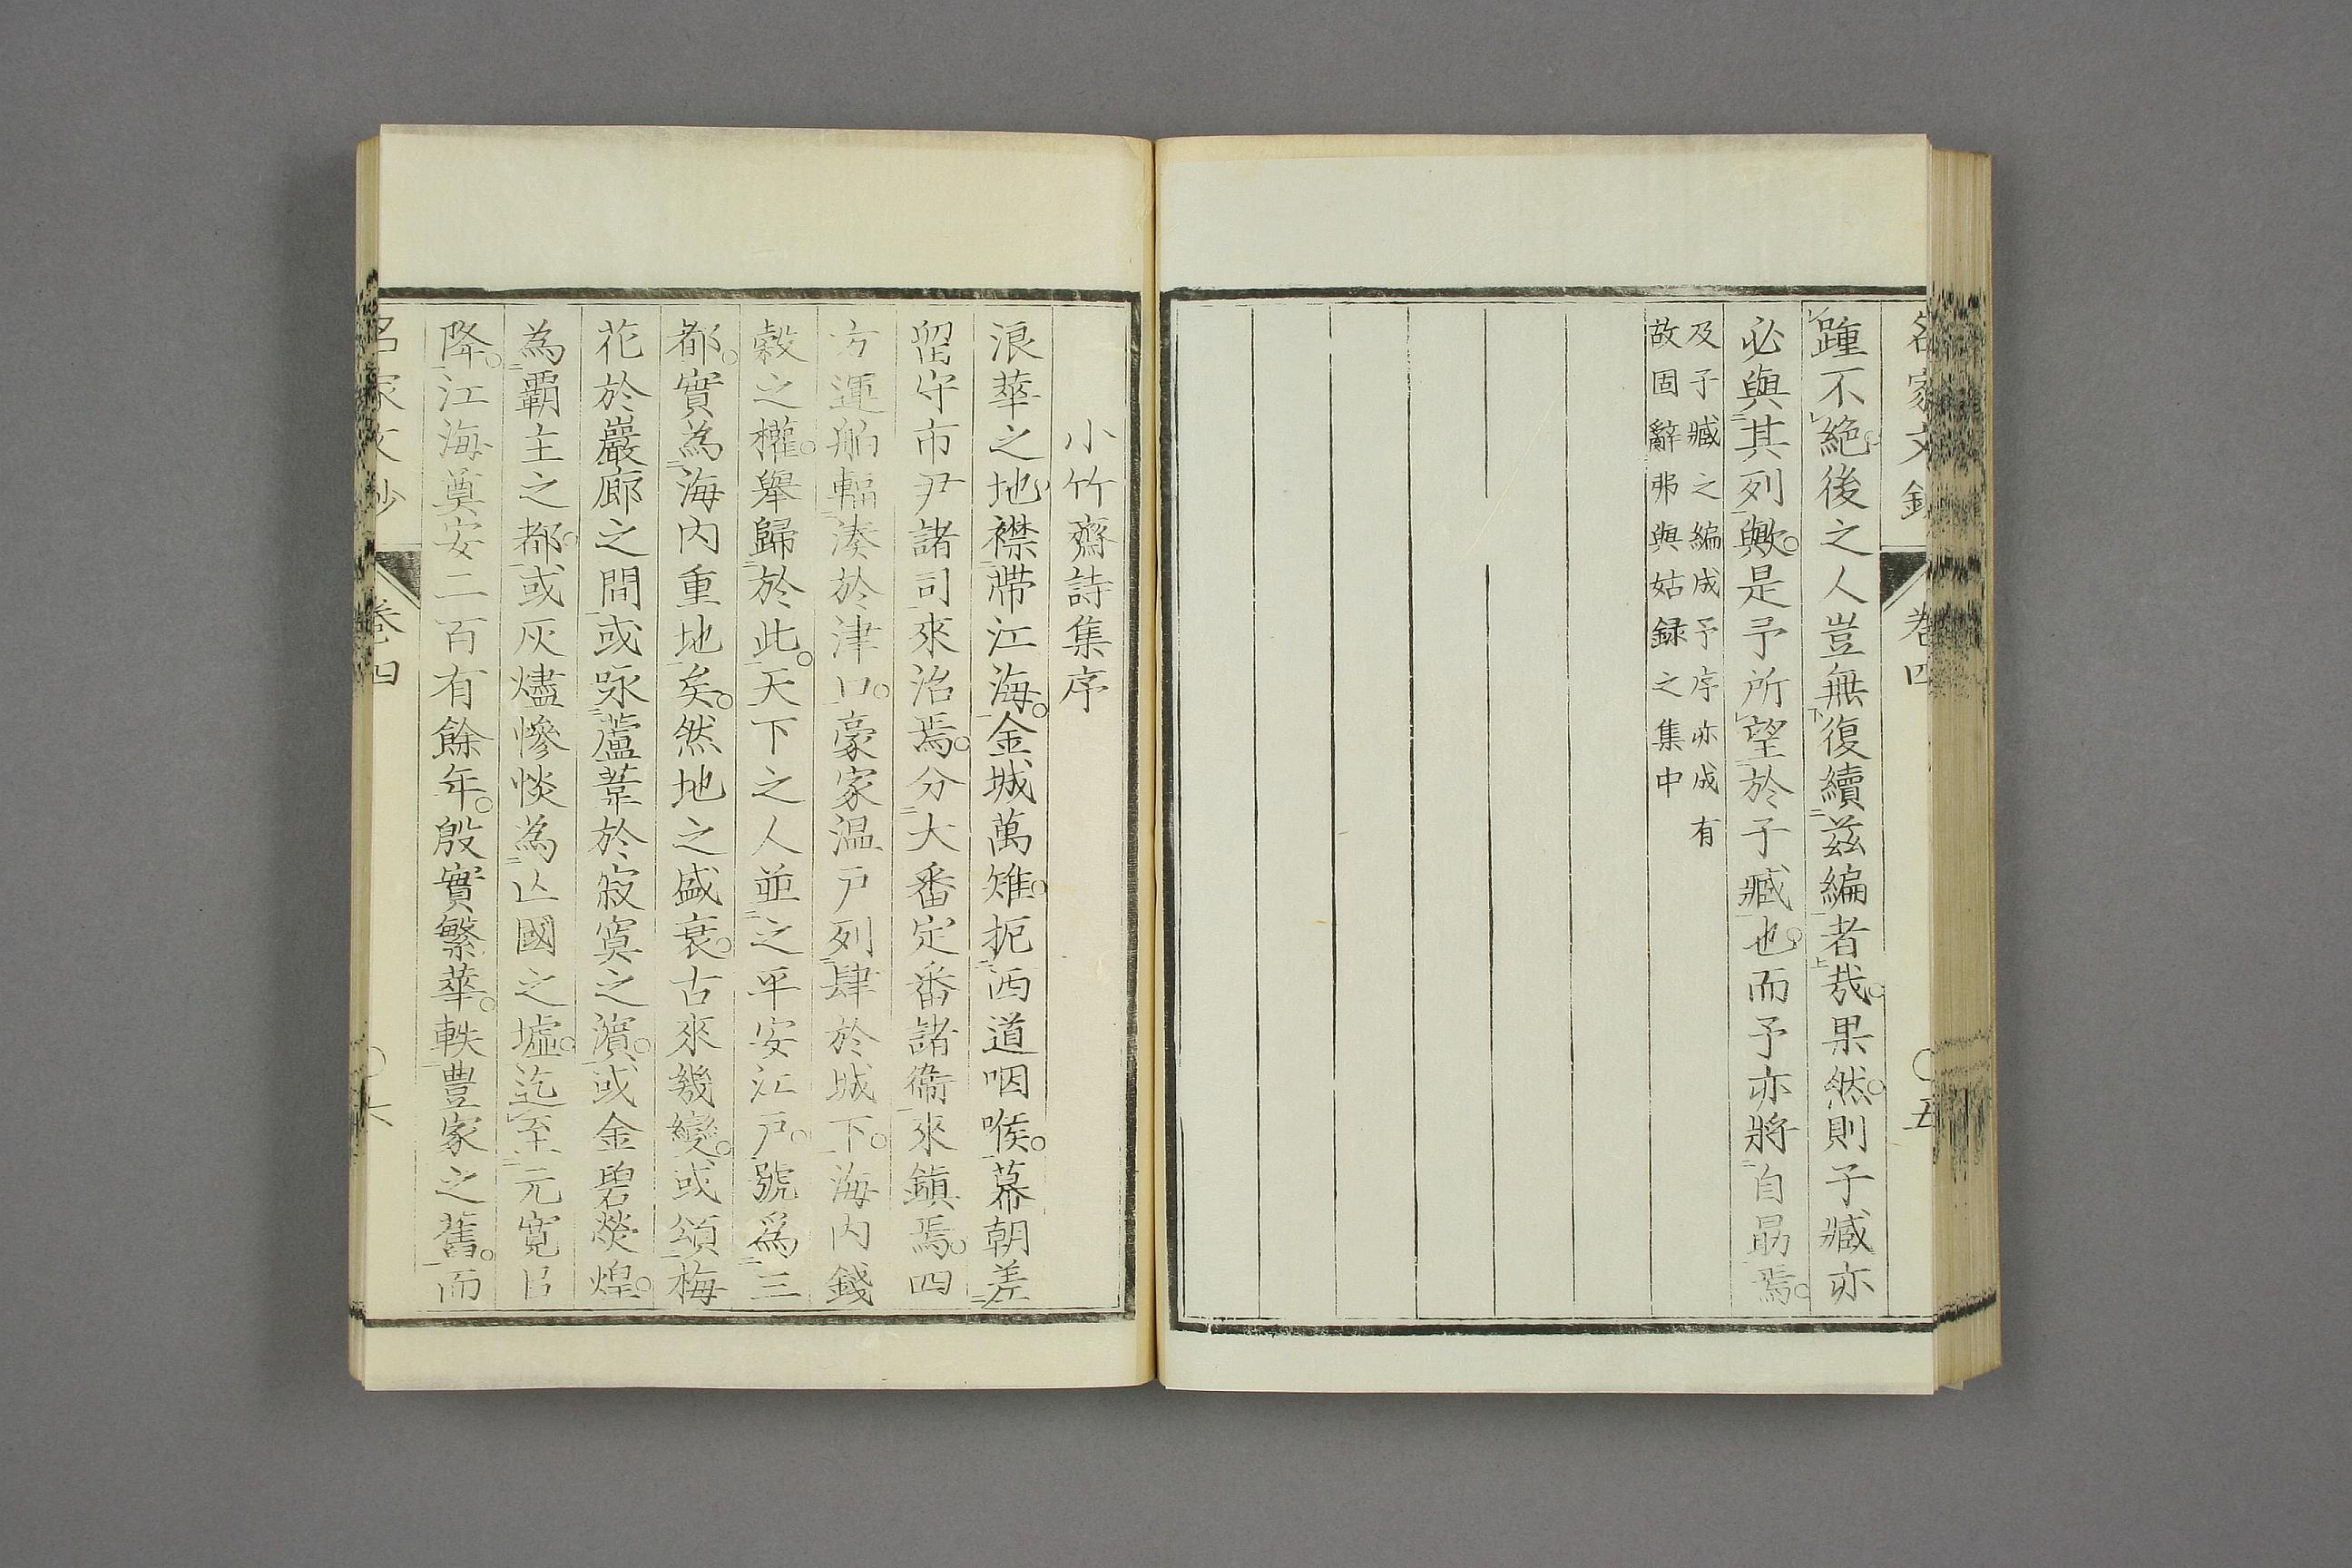 名家文鈔 卷四 〇五
踵不絶後之人豈無復續茲編者哉。果然。則子臧亦
必與其列歟。是予所望於子臧也。而予亦將自勗焉。
及子臧之編成予序亦成有
故固辭弗與姑録之集中
小竹齋詩集序
浪華之地襟帶江海。金城萬雉。扼西道咽喉。幕朝差
留守市尹諸司來治焉。分大番定番諸衞來鎮焉。四
方運舶輻湊於津口。豪家温戸列肆於城下。海内錢
穀之權。舉歸於此。天下之人並之平安江戸。號爲三
都。實為海内重地矣。然地之盛衰。古來幾變。或頌梅
花於巖廊之間或咏蘆葦於寂寞之濱。或金碧熒煌。
為霸主之都。或灰燼慘惔為亾國之墟。迄至元寛㠯
降。江海奠安二百有餘年。殷實繁華。軼豊家之舊。而
名家文鈔 卷四 〇六